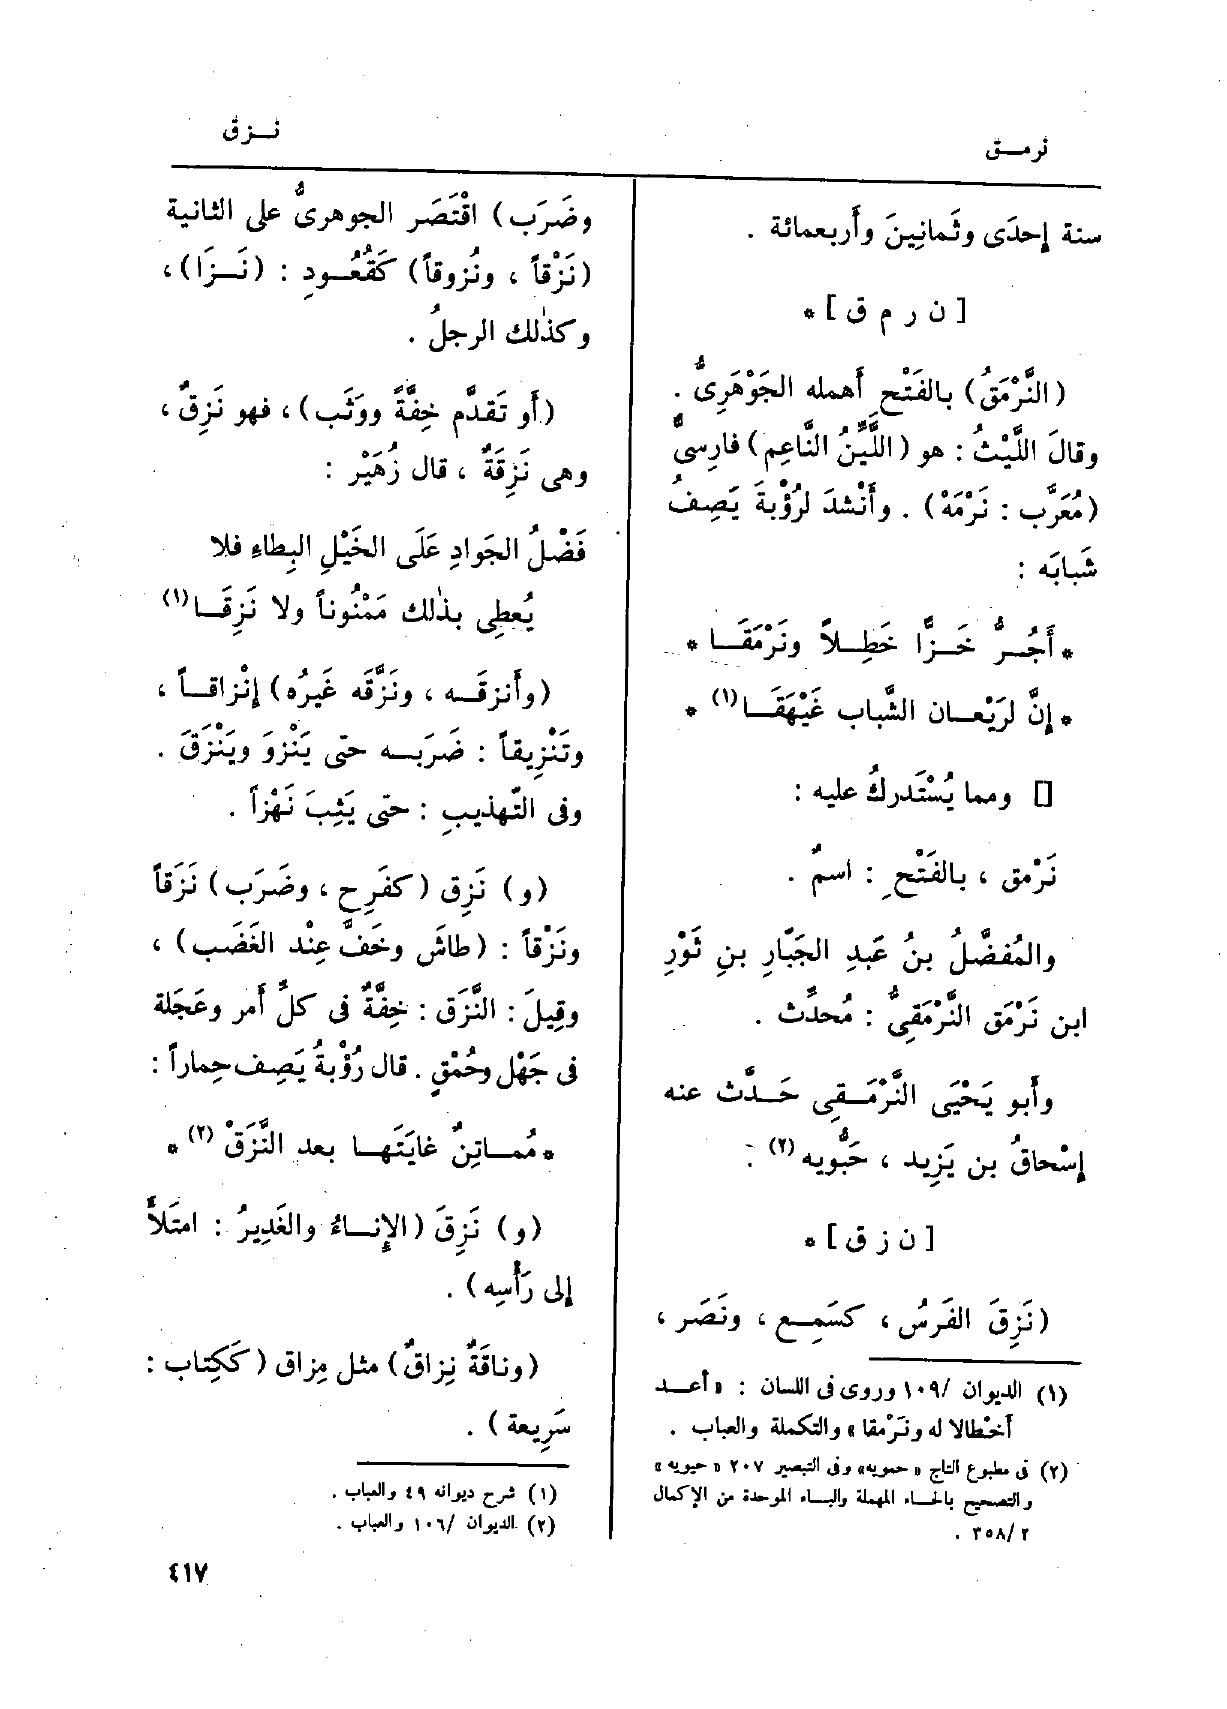 نرمـق
نـزق
سنة إحدَى وثَمانِينَ وأَربعمائة .
[ ن ر م ق ] *
(النَّرْمَقُ) بالفَتْحِ أَهمله الجَوْهَرِىُّ .
وقالَ اللَّيْثُ : هو (اللَّيِّنُ النَّاعِم) فارِسىٌّ
(مُعَرَّب : نَرْمَهْ) . وأَنْشدَ لرُؤْبةَ يَصِفُ
شَبابَه :
* أَجُـرُّ خَـزًّا خَطِـلاً ونَرْمَقَـا *
* إنَّ لرَيْعـان الشَّباب غَيْهَقَـا (١) *
[] ومما يُسْتَدركُ عليه :
نَرْمق ، بالفَتْحِ : اسمٌ .
والمُفضَّلُ بنُ عَبدِ الجَبّارِ بنِ ثَوْرِ
ابن نَرْمَق النَّرْمَقىُّ : مُحدِّث .
وأَبو يَحْيَى النَّرْمَـقِى حَـدَّث عنه
إسْحاقُ بن يَزِيد ، حَبُّويه (٢) .
[ ن ز ق ] *
(نَزِقَ الفَرَسُ ، كسَمِـع ، ونَصَر ،
(١) الديوان /١٠٩ وروى فى اللسان : «أعـد
أخْطالا له ونَرْمقا» والتكملة والعباب .
(٢) فى مطبوع التاج «حمويه» وفى التبصير ٢٠٧ «حيويه»
والتصحيح بالحاء المهملة والباء الموحدة من الإكمال
٢/ ٣٥٨ .
وضَرَب) اقْتَصَر الجوهرىُّ على الثانية
(نَزْقاً ، ونُزوقاً) كَقُعُـودٍ : (نَـزَا)،
وكذٰلك الرجلُ .
(أو تَقدَّم خِفَّةً ووَثَب)، فهو نَزِقٌ ،
وهى نَزِقَةٌ ، قال زُهَيْر :
فَضْلُ الجَوادِ عَلَى الخَيْلِ البِطاءِ فلا
يُعطِى بذٰلك مَمْنُوناً ولا نَزِقَـا (١)
(وأَنزقَـه ، ونَزَّقَه غَيرُه) إنْزاقـاً ،
وتَنْزِيقاً : ضَرَبَـه حتى يَنْزوَ ويَنْزِقَ .
وفى التّهذيبِ : حتى يَثِبَ نَهْزاً .
(و) نَزِق (كفَرِح ، وضَرَب) نَزَقاً
ونَزْقاً : (طاشَ وخَفَّ عِنْد الغَضَب) ،
وقِيلَ : النَّزَق : خِفَّةٌ فى كلِّ أَمر وعَجَلة
فى جَهْل وحُمْقٍ . قال رُؤْبةُ يَصِف حِماراً :
* مُمـاتِنٌ غايَتَهـا بعد النَّزَقْ (٢) *
(و) نَزِقَ (الإِنـاءُ والغَدِيرُ : امتَلأَ
إلى رَأْسِه) .
(وناقَةٌ نِزاقٌ) مثل مِزاق (كَكِتاب :
سَرِيعة) .
(١) شرح ديوانه ٤٩ والعباب .
(٢) الديوان /١٠٦ والعباب .
٤١٧